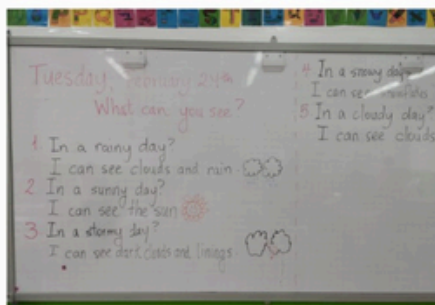 Tuesday, February 24th
What can you see?
1 In a rainy day?
I can see clouds and rain.
2 In a sunny day?
I can see the sun
3 In a stormy day?
I can see dark clouds and linings
4 In a snowy day?
I can see
5 In a cloudy day?
I can see clouds